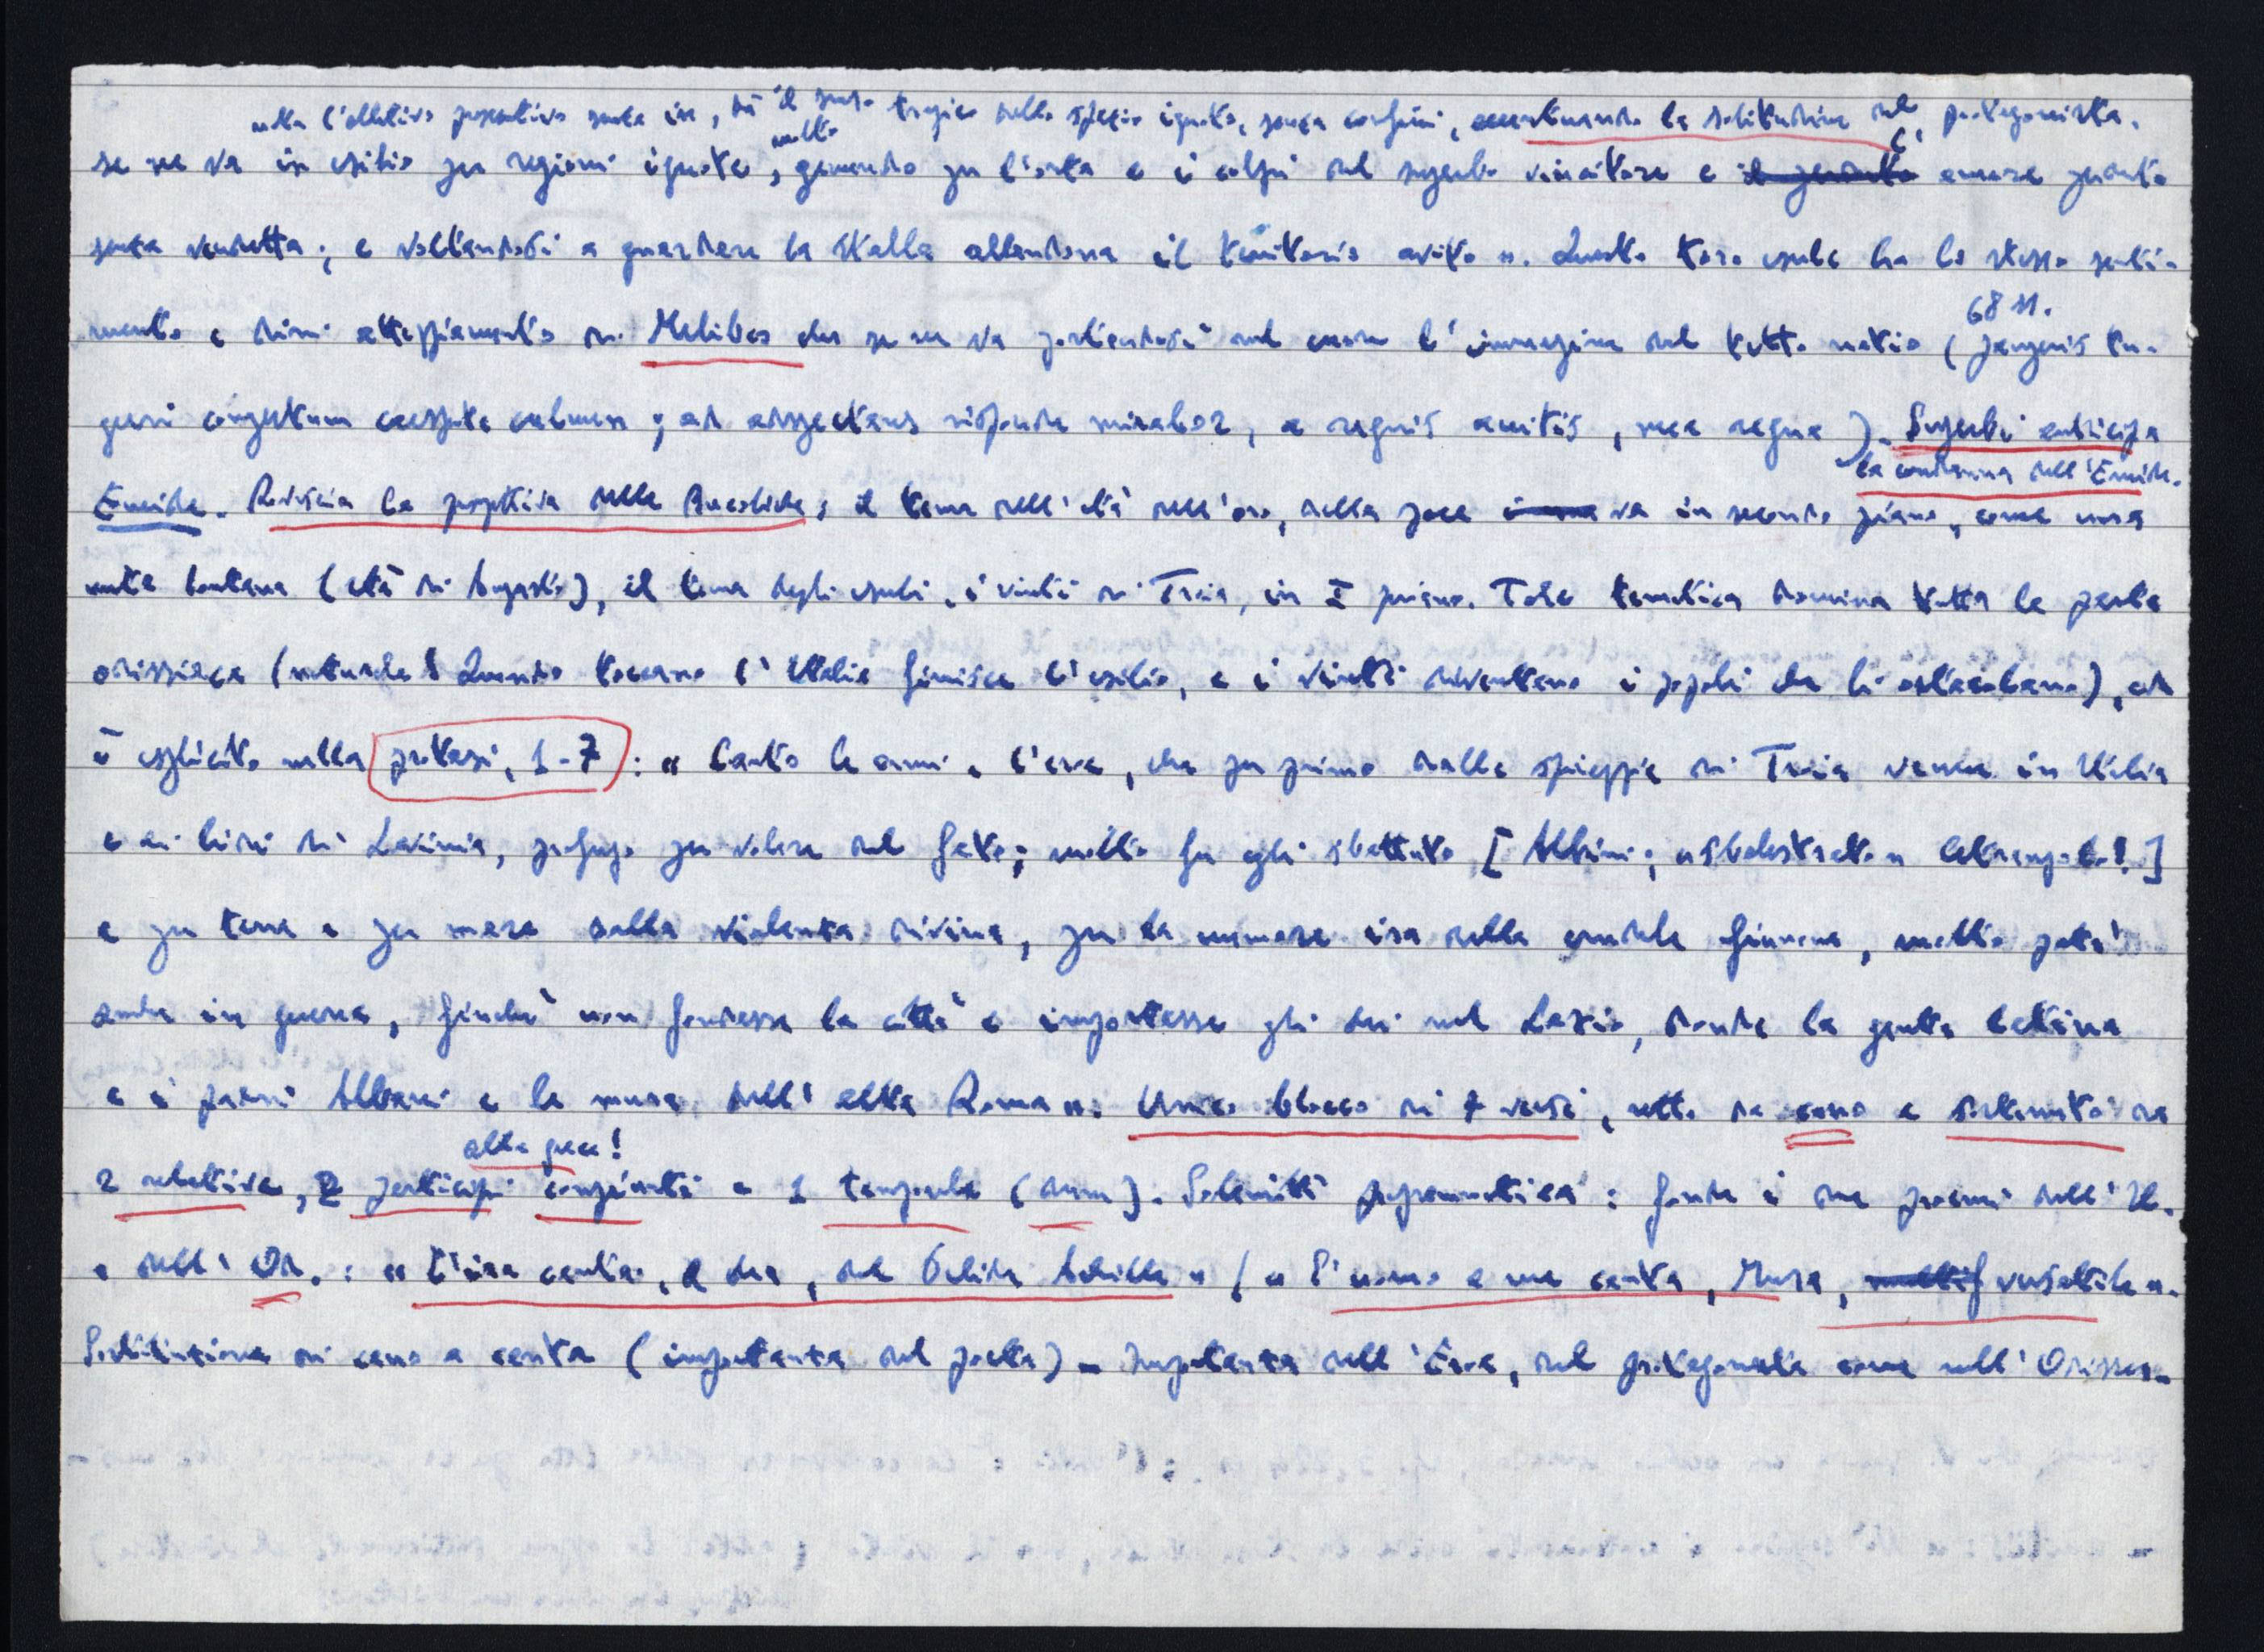 nella l'ablativo prosecutivo senza in, dà il senso tragico dello spazio ignoto, senza confini, accentuando la solitudine del protagonista.
se ne va in esilio per regioni ignote, molto gemendo per l'onta e i colpi del superbo vincitore e l' amore perduto
senza vendetta; e voltandosi a guardare la stalla abbandona il territorio avito ». Questo toro esule ha lo stesso senti-
mento e direi atteggiamento di Melibeo che se ne va portandosi nel cuore l'immagine del tetto natio (68 ss. pauperis tu-
guri congestum caespite culmen; ad aspectans risponde mirabor, a regnis avitis, mea regna). Superbi anticipa
Eneide. la condanna dell'Eneide. Rovescia la prospettiva delle Bucoliche; il tema dell'età dell'oro, della pace va in secondo piano, come una
meta lontana (età di Augusto), il tema degli esuli, i vinti di Troia, in I piano. Tale tematica domina tutta la parte
odissiaca (naturale! Quando toccano l'Italia finisce l'esilio, e i vinti diventano i popoli che li ostacolano), ed
è esplicito nella protasi, 1-7: « Canto le armi e l'eroe, che per primo dalle spiagge di Troia venne in Italia
e ai lidi di Lavinio, profugo per volere del fato; molto fu egli sbattuto [Albini; « sbalestrato » Calzecchi!]
e per terra e per mare dalla violenza divina, per la memore ira della crudele Giunone, molto patì
anche in guerra, finché non fondasse la città e importasse gli dei nel Lazio, donde la gente latina
e i padri Albani e le mura dell'alta Roma ». Unico blocco di 7 versi, retto da cano e sostenuto da
2 relative, 2 participi congiunti alla greca! e 1 temporale (dum). Solennità programmatica: fonde i due proemi dell'Il.
e dell'Od.: « L'ira canta, o dea, del Pelide Achille » / « L'uomo a me canta, Musa, versatile ».
Sostituzione di cano a canta (importanza del poeta) - Importanza dell'Eroe, del protagonista come nell'Odissea.